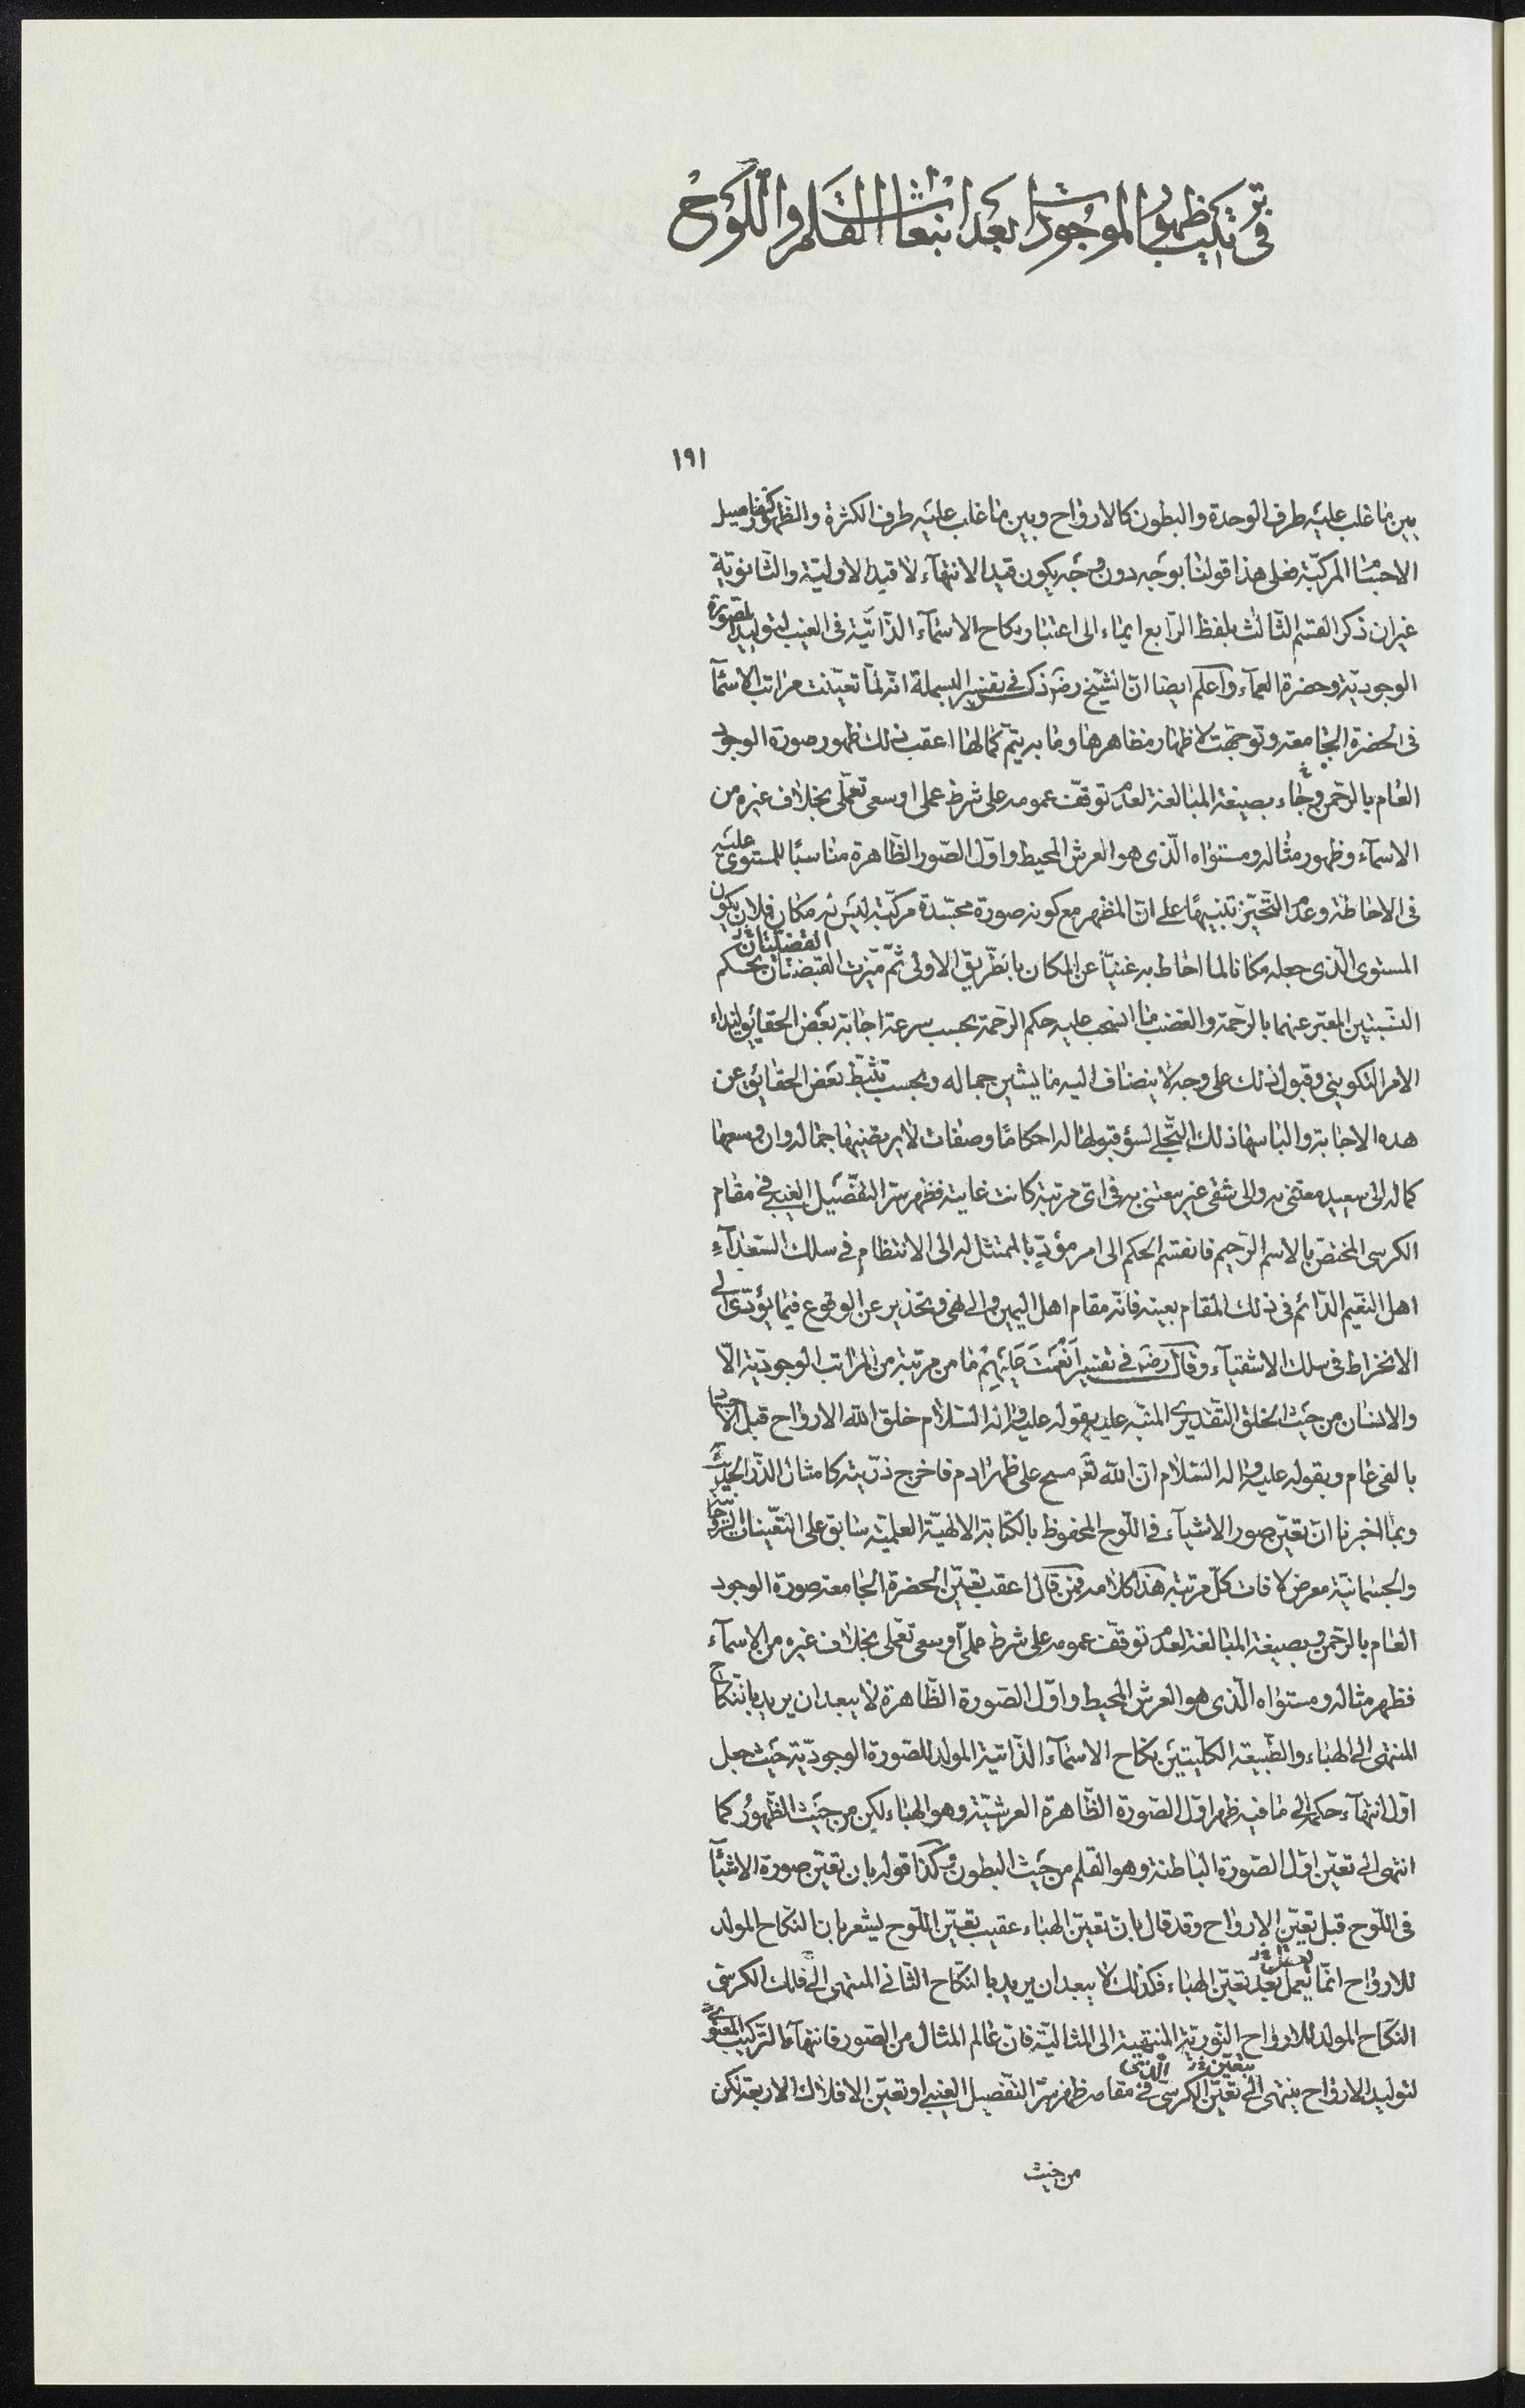 فى ترتيب ظهور الموجودات بعد انبعاث القلم واللوح
١٩١
بين ما غلب عليه طرف الوحدة والبطون كالارواح وبين ما غلب عليه طرف الكثرة والظهور كتفاصيل
الاجسام المركبة فعلى هذا قولنا بوجه دون وجه يكون قيد الانتهاء لا قيد الاولية والثانوية
غير ان ذكر القسم الثالث بلفظ الرابع ايماء الى اعتبار نكاح الاسماء الذاتية فى الغيب لتوليد الصورة
الوجودية وحضرة العماء واعلم ايضا ان الشيخ رضه ذكر فى تفسير البسملة انه لما تعينت مراتب الاسماء
فى الحضرة الجامعة وتوجهت لاظهار مظاهرها وما به يتم كمالها اعقب ذلك ظهور صورة الوجود
العام بالرحمن وجاء بصيغة المبالغة لعدم توقف عمومه على شرط عملى او سعى تعملى بخلاف غيره من
الاسماء وظهور مثاله ومستواه الذى هو العرش المحيط واول الصور الظاهرة مناسبا للمستوى عليه
فى الاحاطة وعدم التحيز تنبيها على ان المظهر مع كونه صورة مجسدة مركبة ليس له مكان فلان يكون
المستوى الذى جعله مكانا لما احاط به غنيا عن المكان بالطريق الاولى ثم ميزت القبضتان بحكم
النسبتين المعبر عنهما بالرحمة والغضب ما انسحب عليه حكم الرحمة بحسب سرعة اجابة بعض الحقايق لنداء
الامر التكوينى وقبول ذلك على وجه لا ينضاف اليه ما يشين جماله وبحسب تثبط بعض الحقايق عن
هذه الاجابة والباسها ذلك التجلى لسوء قبولها له احكاما وصفات لا يرتضيها جماله وان وسعها
كماله الى سعيد معتنى به والى شقى غير معتنى به فى اى مرتبة كانت غايته فظهر سر التفصيل الغيبى فى مقام
الكرسى المختص بالاسم الرحيم فانقسم الحكم الى امر مؤد بالممتثل له الى الانتظام فى سلك السعداء
اهل النعيم الدائم فى ذلك المقام بعينه فانه مقام اهل اليمين والى نهى وتحذير عن الوقوع فيما يؤدى الى
الانخراط فى سلك الاشقياء وقال رضه فى تفسير انعمت عليهم ما من مرتبة من المراتب الوجودية الا
والانسان من حيث الخلق التقديرى المنبه عليه بقوله عليه واله السلام خلق الله الارواح قبل الاجساد
بالفى عام وبقوله عليه واله السلام ان الله تعه مسح على ظهر ادم فاخرج ذريته كامثال الذر الحديث
وبما اخبرنا ان تعين صور الاشياء فى اللوح المحفوظ بالكتابة الالهية العلمية سابق على التعينات الروحانية
والجسمانية معرض لافات كل مرتبة هذا كلامه فمن قال اعقب تعين الحضرة الجامعة صورة الوجود
العام بالرحمن وبصيغة المبالغة لعدم توقف عمومه على شرط عملى او سعى تعملى بخلاف غيره من الاسماء
فظهر مثاله ومستواه الذى هو العرش المحيط واول الصورة الظاهرة لا يبعد ان يريد بالنكاح
المنتهى الى الهباء والطبيعة الكليتين نكاح الاسماء الذاتية المولد للصورة الوجودية حيث جعل
اول انتهاء حكمه الى ما فيه ظهر اول الصورة الظاهرة العرشية وهو الهباء لكن من حيث الظهور كما
انتهى الى تعين اول الصورة الباطنة وهو القلم من حيث البطون وكذا قوله بان تعين صورة الاشياء
فى اللوح قبل تعين الارواح وقد قال بان تعين الهباء عقيب تعين اللوح ليشعر بان النكاح المولد
للارواح انما يعمل بعد تعين الهباء فكذلك لا يبعد ان يريد بالنكاح الثانى المنتهى الى فلك الكرسى
النكاح المولد للارواح النورية المنتهية الى المثالية فان عالم المثال من الصور فانتهاء التركيب المعنوى
لتوليد الارواح ينتهى الى تعين الكرسى الذى فى مقامه ظهر سر التفصيل الغيبى او تعين الافلاك الاربعة لكن
من حيث